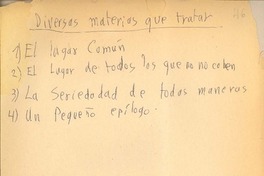 Diversas materias que tratar
1) El lugar Común
2) El Lugar de todos los que no caben
3) La Seriedad de todos maneras
4) Un Pequeño epílogo.